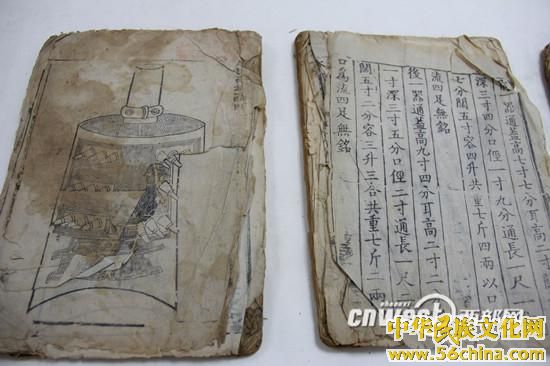 器通蓋高七寸七分耳高二寸
深三寸四分口徑一寸九分通長一尺
七分闊五寸容四升共重七斤四兩以口
流四足無銘
後 器通蓋高九寸四分耳高二寸
一寸深三寸五分口徑二寸通長一尺
闊五寸二分容三升三合共重七斤二兩
口爲流四足無銘
shaanxi
cnwest 西部网
中华民族文化网
www.56china.com